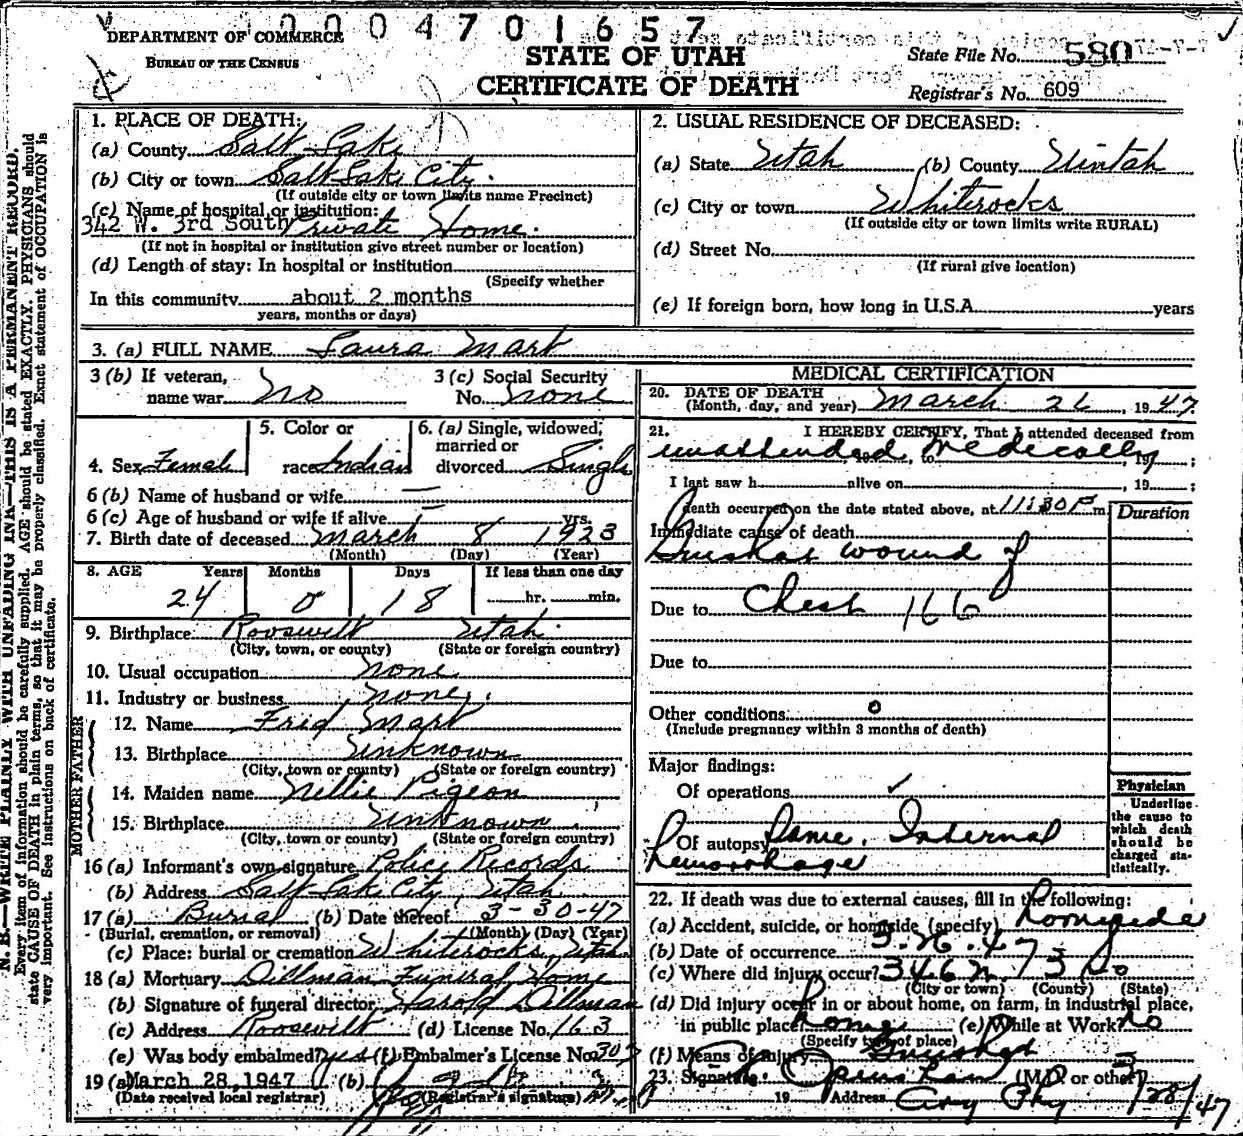 0004701657
DEPARTMENT OF COMMERCE
BUREAU OF THE CENSUS
STATE OF UTAH
CERTIFICATE OF DEATH
State File No. 580
Registrar's No. 609
N. B.—WRITE PLAINLY WITH UNFADING INK—THIS IS A PERMANENT RECORD.
Every item of information should be carefully supplied. AGE should be stated EXACTLY. PHYSICIANS should
state CAUSE OF DEATH in plain terms, so that it may be properly classified. Exact statement of OCCUPATION is
very important. See instructions on back of certificate.
1. PLACE OF DEATH:
(a) County Salt Lake
(b) City or town Salt Lake City.
(If outside city or town limits name Precinct)
(c) Name of hospital or institution:
342 W. 3rd South Private Home.
(If not in hospital or institution give street number or location)
(d) Length of stay: In hospital or institution
(Specify whether
In this community about 2 months
years, months or days)
2. USUAL RESIDENCE OF DECEASED:
(a) State Utah (b) County Uintah
(c) City or town Whiterocks
(If outside city or town limits write RURAL)
(d) Street No.
(If rural give location)
(e) If foreign born, how long in U.S.A. years
3. (a) FULL NAME Laura Mart
3 (b) If veteran, name war No
3 (c) Social Security No. none
4. Sex Female
5. Color or race Indian
6. (a) Single, widowed, married or divorced Single
6 (b) Name of husband or wife —
6 (c) Age of husband or wife if alive — yrs.
7. Birth date of deceased March 8 1923
(Month) (Day) (Year)
8. AGE Years Months Days If less than one day
24 0 18 hr. min.
9. Birthplace Roosevelt Utah.
(City, town, or county) (State or foreign country)
10. Usual occupation none
11. Industry or business none.
FATHER
12. Name Fred Mart
13. Birthplace Unknown
(City, town or county) (State or foreign country)
MOTHER
14. Maiden name Nellie Pigeon
15. Birthplace Unknown
(City, town or county) (State or foreign country)
16 (a) Informant's own signature Police Records
(b) Address Salt Lake City, Utah.
17 (a) Burial (b) Date thereof 3-30-47
(Burial, cremation, or removal) (Month) (Day) (Year)
(c) Place: burial or cremation Whiterocks, Utah.
18 (a) Mortuary Dillman Funeral Home
(b) Signature of funeral director Harold Dillman
(c) Address Roosevelt (d) License No. 163
(e) Was body embalmed? yes (f) Embalmer's License No. 307
19 (a) March 28, 1947 (b)
(Date received local registrar) (Registrar's signature)
MEDICAL CERTIFICATION
20. DATE OF DEATH
(Month, day, and year) March 26, 1947
21. I HEREBY CERTIFY, That I attended deceased from
unattended medically , 19 ;
I last saw h alive on , 19 ;
Death occurred on the date stated above, at 11:30P m.
Duration
Immediate cause of death
Gunshot wound of
Due to Chest 166
Due to
Other conditions 0
(Include pregnancy within 3 months of death)
Major findings:
Of operations
Of autopsy Same. Internal
hemorrhage
Physician
Underline the cause to which death should be charged statistically.
22. If death was due to external causes, fill in the following:
(a) Accident, suicide, or homicide (specify) homicide
(b) Date of occurrence 3.26.47
(c) Where did injury occur? 346 W. 3 So
(City or town) (County) (State)
(d) Did injury occur in or about home, on farm, in industrial place,
in public place? home (e) While at Work? no
(Specify type of place)
(f) Means of injury Gunshot
23. Signature (M.D. or other)
19 Address Cty Phy 3/28/47